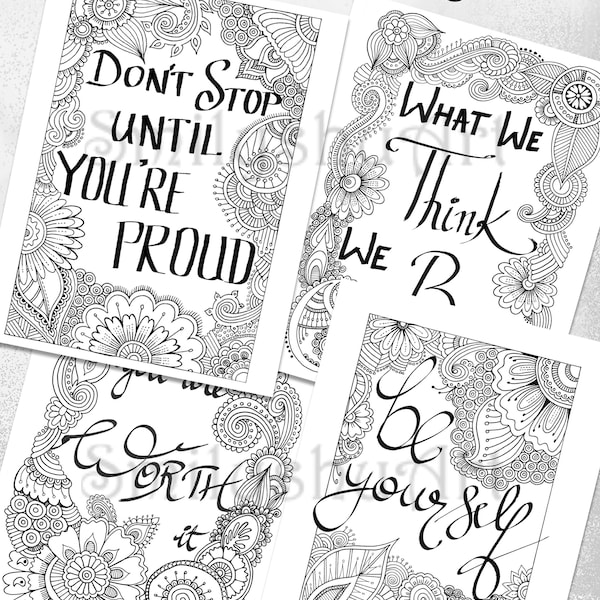 DON'T STOP
UNTIL
YOU'RE
PROUD
WHAT WE
Think
WE R
you are
WORTH
it
be
yourself